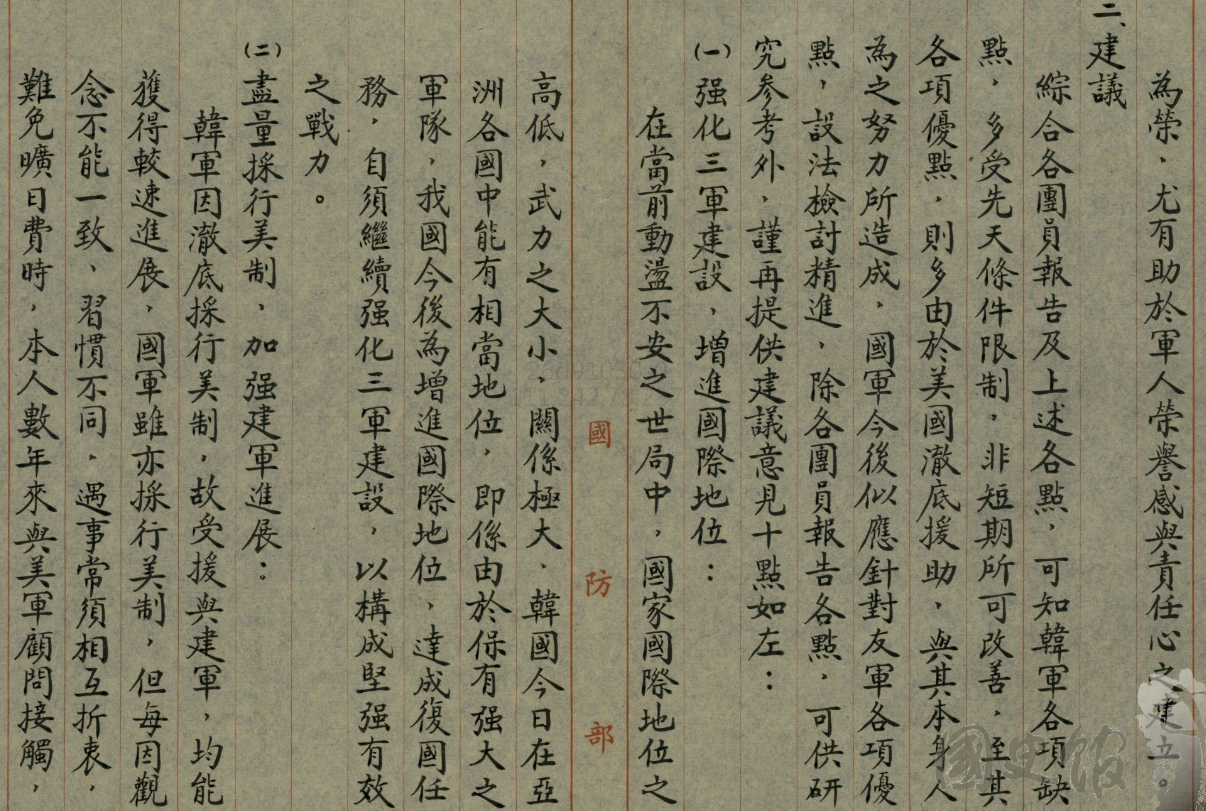 為榮，尤有助於軍人榮譽感與責任心之建立。
二、建議
綜合各團員報告及上述各點，可知韓軍各項缺
點，多受先天條件限制，非短期所可改善，至其
各項優點，則多由於美國澈底援助，與其本身人
為之努力所造成，國軍今後似應針對友軍各項優
點，設法檢討精進，除各團員報告各點，可供研
究參考外，謹再提供建議意見十點如左：
㈠强化三軍建設，增進國際地位：
在當前動盪不安之世局中，國家國際地位之
國防部
高低，武力之大小，關係極大，韓國今日在亞
洲各國中能有相當地位，即係由於保有强大之
軍隊，我國今後為增進國際地位，達成復國任
務，自須繼續强化三軍建設，以構成堅强有效
之戰力。
㈡盡量採行美制，加强建軍進展：
韓軍因澈底採行美制，故受援與建軍，均能
獲得較速進展，國軍雖亦採行美制，但每因觀
念不能一致，習慣不同，遇事常須相互折衷，
難免曠日費時，本人數年來與美軍顧問接觸，
國史館